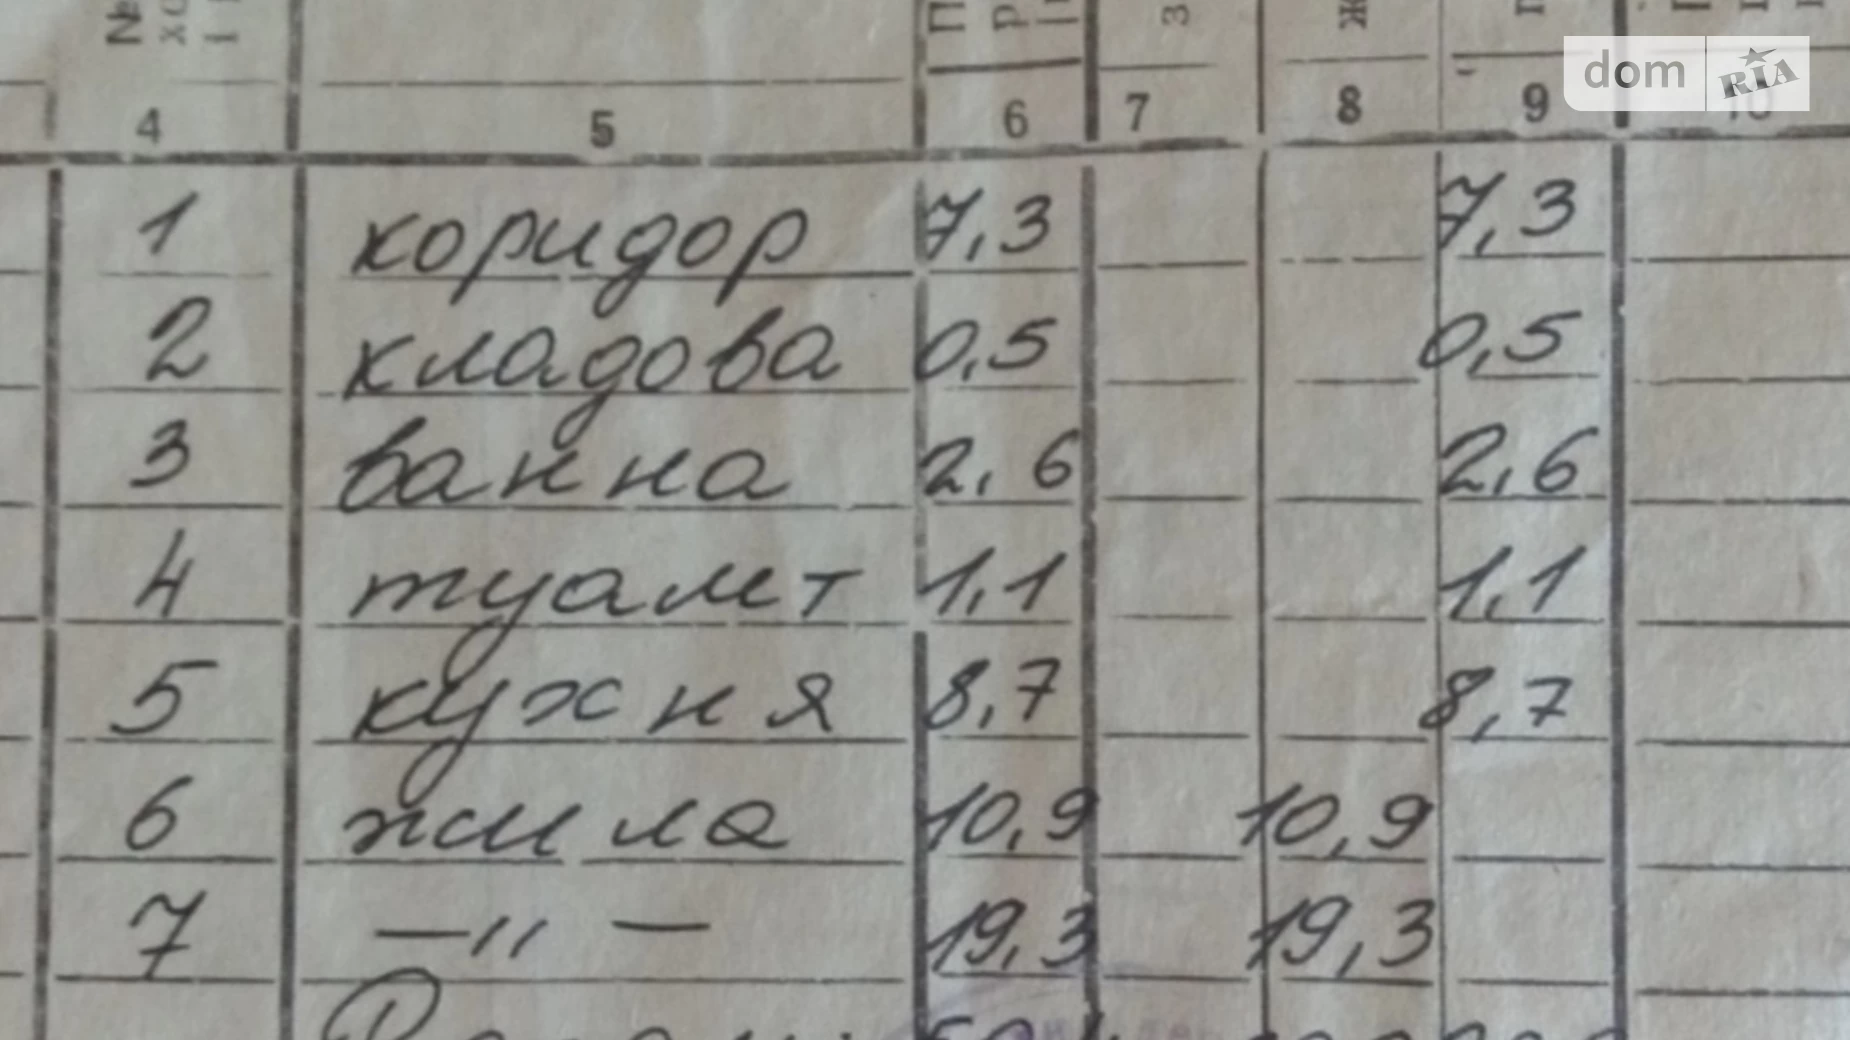 №
dom RIA
4 5 6 7 8 9 10
1 коридор 7,3 7,3
2 кладова 0,5 0,5
3 ванна 2,6 2,6
4 туалет 1,1 1,1
5 кухня 8,7 8,7
6 жила 10,9 10,9
7 —"— 19,3 19,3